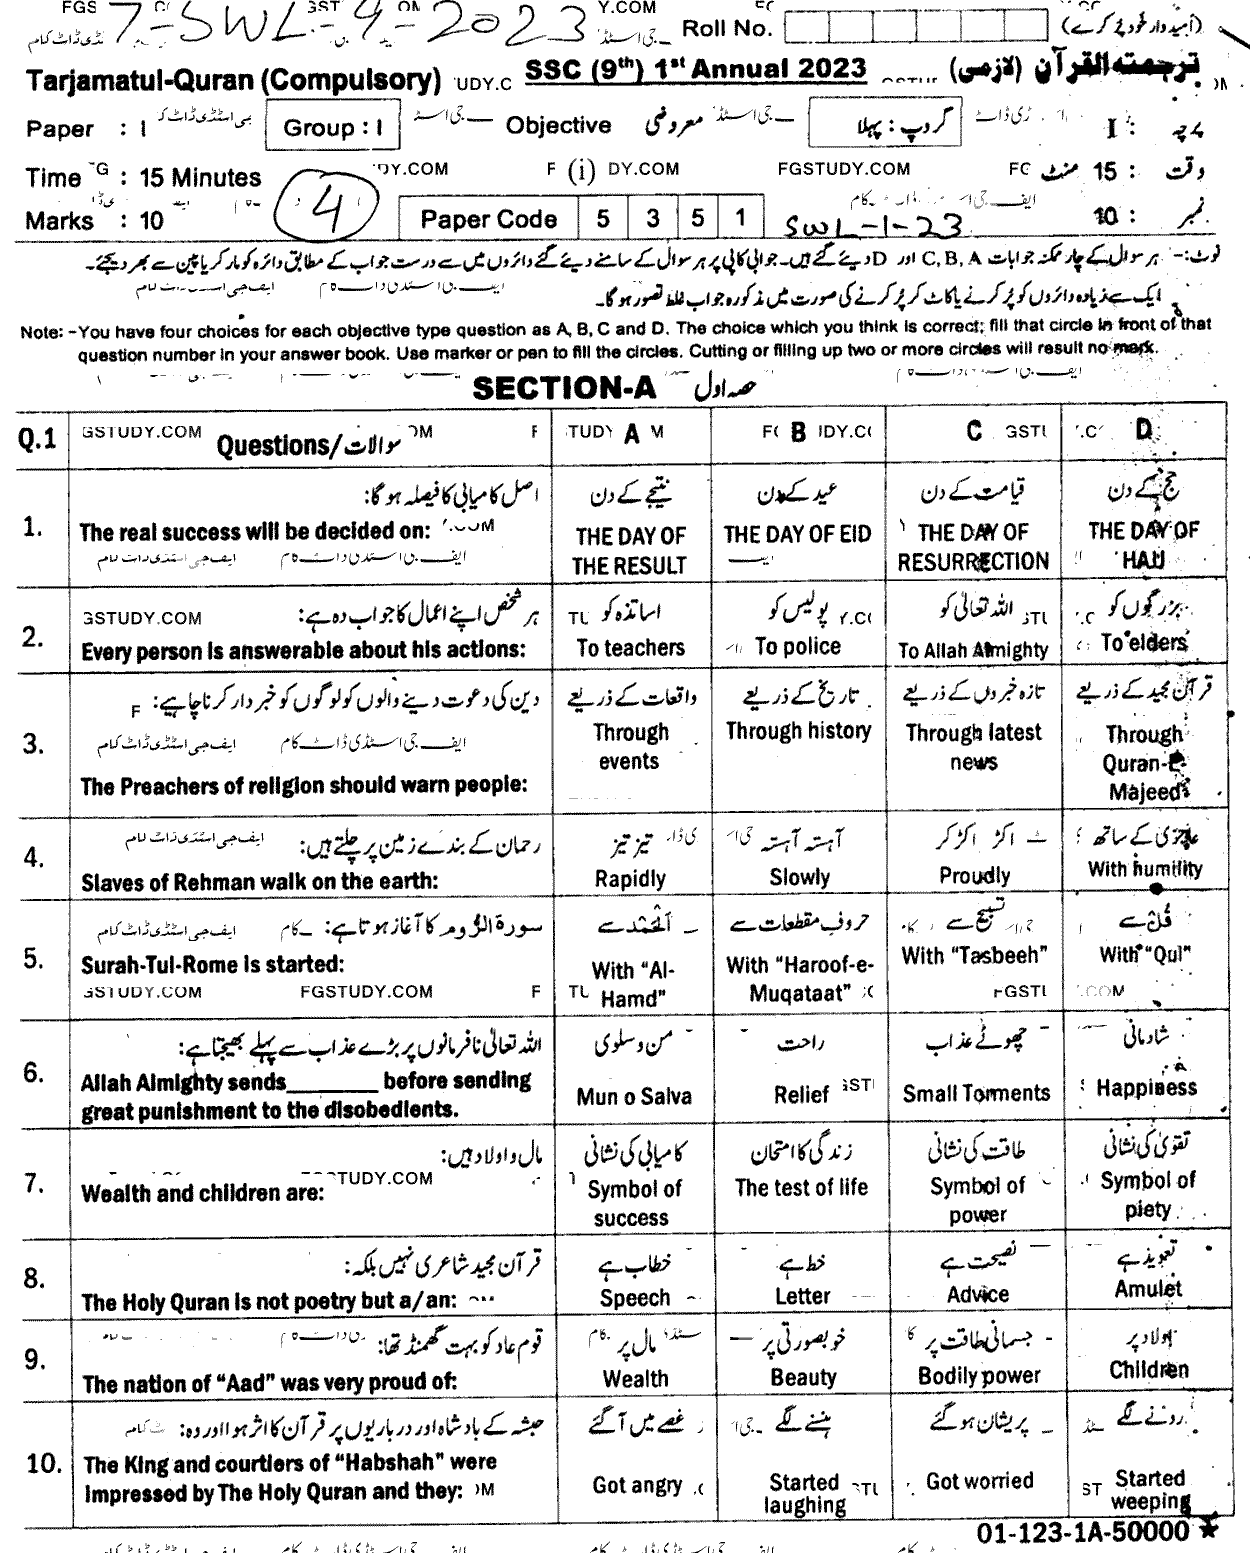 7-SWL-9-2023
Roll No. (امیدوار خود پُر کرے)
Tarjamatul-Quran (Compulsory) SSC (9th) 1st Annual 2023 ترجمتہ القرآن (لازمی)
Paper : I Group : I Objective معروضی گروپ : پہلا پرچہ : I
Time : 15 Minutes (i) وقت : 15 منٹ
FGSTUDY.COM
Marks : 10 4 Paper Code 5 3 5 1 SWL-1-23 نمبر : 10
نوٹ:- ہر سوال کے چار ممکنہ جوابات C, B, A اور D دیئے گئے ہیں۔ جوابی کاپی پر ہر سوال کے سامنے دیئے گئے دائروں میں سے درست جواب کے مطابق دائرہ کو مارکر یا پین سے بھر دیجئے۔
ایک سے زیادہ دائروں کو پُر کرنے یا کاٹ کر پُر کرنے کی صورت میں مذکورہ جواب غلط تصور ہوگا۔
Note: -You have four choices for each objective type question as A, B, C and D. The choice which you think is correct; fill that circle in front of that
question number in your answer book. Use marker or pen to fill the circles. Cutting or filling up two or more circles will result no mark.
SECTION-A حصہ اول
Q.1 Questions/سوالات A B C D
اصل کامیابی کا فیصلہ ہو گا: نتیجے کے دن عید کے دن قیامت کے دن حج کے دن
1. The real success will be decided on: THE DAY OF THE DAY OF EID THE DAY OF THE DAY OF
THE RESULT RESURRECTION HAJJ
ہر شخص اپنے اعمال کا جواب دہ ہے: اساتذہ کو پولیس کو اللہ تعالیٰ کو بزرگوں کو
2. Every person is answerable about his actions: To teachers To police To Allah Almighty To elders
دین کی دعوت دینے والوں کو لوگوں کو خبردار کرنا چاہیے: واقعات کے ذریعے تاریخ کے ذریعے تازہ خبروں کے ذریعے قرآن مجید کے ذریعے
3. Through Through history Through latest Through
events news Quran-e-
The Preachers of religion should warn people: Majeed
رحمان کے بندے زمین پر چلتے ہیں: تیز تیز آہستہ آہستہ اکڑ اکڑ کر عاجزی کے ساتھ
4. Slaves of Rehman walk on the earth: Rapidly Slowly Proudly With humility
سورۃ الرُّوم کا آغاز ہوتا ہے: اَلْحَمْد سے حروفِ مقطعات سے تسبیح سے قُلْ سے
5. Surah-Tul-Rome is started: With "Al- With "Haroof-e- With "Tasbeeh" With "Qul"
Hamd" Muqataat"
GSTUDY.COM FGSTUDY.COM
اللہ تعالیٰ نافرمانوں پر بڑے عذاب سے پہلے بھیجتا ہے: من و سلویٰ راحت چھوٹے عذاب شادمانی
6. Allah Almighty sends_______ before sending Mun o Salva Relief Small Torments Happiness
great punishment to the disobedients.
مال و اولاد ہیں: کامیابی کی نشانی زندگی کا امتحان طاقت کی نشانی تقویٰ کی نشانی
7. Wealth and children are: Symbol of The test of life Symbol of Symbol of
success power piety
قرآن مجید شاعری نہیں بلکہ: خطاب ہے خط ہے نصیحت ہے تعویذ ہے
8. The Holy Quran is not poetry but a/an: Speech Letter Advice Amulet
قوم عاد کو بہت گھمنڈ تھا: مال پر خوبصورتی پر جسمانی طاقت پر اولاد پر
9. The nation of "Aad" was very proud of: Wealth Beauty Bodily power Children
حبشہ کے بادشاہ اور درباریوں پر قرآن کا اثر ہوا اور وہ: غصے میں آ گئے ہنسنے لگے پریشان ہو گئے رونے لگے
10. The King and courtiers of "Habshah" were Got angry Started Got worried Started
impressed by The Holy Quran and they: laughing weeping
01-123-1A-50000 ★